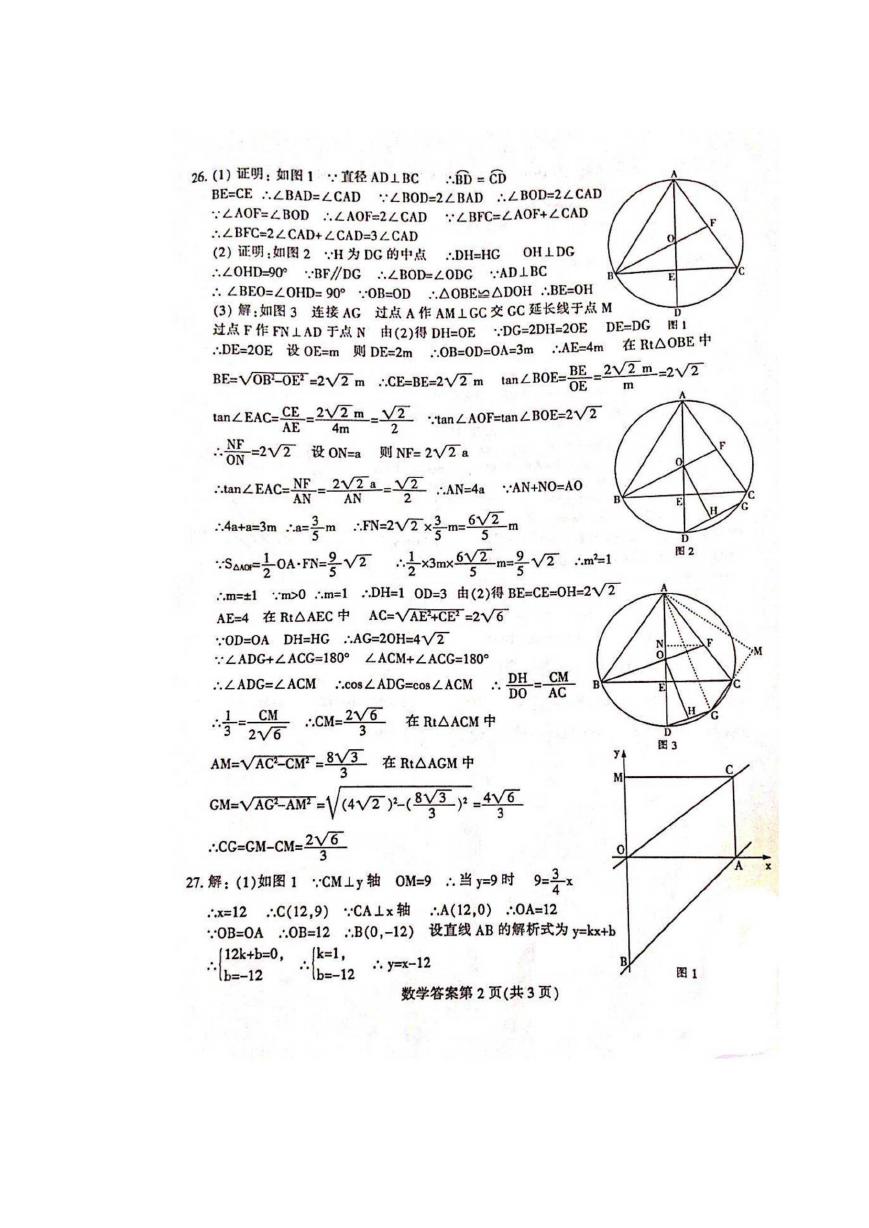 26. (1) 证明：如图 1 ∵直径 AD⊥BC ∴B͡D = C͡D
BE=CE ∴∠BAD=∠CAD ∵∠BOD=2∠BAD ∴∠BOD=2∠CAD
∵∠AOF=∠BOD ∴∠AOF=2∠CAD ∵∠BFC=∠AOF+∠CAD
∴∠BFC=2∠CAD+∠CAD=3∠CAD
(2) 证明：如图 2 ∵H 为 DG 的中点 ∴DH=HG OH⊥DG
∴∠OHD=90° ∵BF∥DG ∴∠BOD=∠ODG ∵AD⊥BC
∴ ∠BEO=∠OHD= 90° ∵OB=OD ∴△OBE≌△DOH ∴BE=OH
(3) 解：如图 3 连接 AG 过点 A 作 AM⊥GC 交 GC 延长线于点 M
过点 F 作 FN⊥AD 于点 N 由(2)得 DH=OE ∵DG=2DH=2OE DE=DG
∴DE=2OE 设 OE=m 则 DE=2m ∴OB=OD=OA=3m ∴AE=4m 在 Rt△OBE 中
BE=√(OB²-OE²)=2√2 m ∴CE=BE=2√2 m tan∠BOE=BE/OE=2√2 m/m=2√2
tan∠EAC=CE/AE=2√2 m/4m=√2/2 ∵tan∠AOF=tan∠BOE=2√2
∴NF/ON=2√2 设 ON=a 则 NF= 2√2 a
∴tan∠EAC=NF/AN=2√2 a/AN=√2/2 ∴AN=4a ∵AN+NO=AO
∴4a+a=3m ∴a=3/5 m ∴FN=2√2×3/5 m=6√2/5 m
∵S△AOF=1/2 OA·FN=9/5 √2 ∴1/2×3m×6√2/5 m=9/5 √2 ∴m²=1
∴m=±1 ∵m>0 ∴m=1 ∴DH=1 OD=3 由(2)得 BE=CE=OH=2√2
AE=4 在 Rt△AEC 中 AC=√(AE²+CE²)=2√6
∵OD=OA DH=HG ∴AG=2OH=4√2
∵∠ADG+∠ACG=180° ∠ACM+∠ACG=180°
∴∠ADG=∠ACM ∴cos∠ADG=cos∠ACM ∴ DH/DO=CM/AC
∴1/3=CM/2√6 ∴CM=2√6/3 在 Rt△ACM 中
AM=√(AC²-CM²)=8√3/3 在 Rt△AGM 中
GM=√(AG²-AM²)=√((4√2)²-(8√3/3)²)=4√6/3
∴CG=GM-CM=2√6/3
27. 解：(1)如图 1 ∵CM⊥y 轴 OM=9 ∴当 y=9 时 9=3/4 x
∴x=12 ∴C(12,9) ∵CA⊥x 轴 ∴A(12,0) ∴OA=12
∵OB=OA ∴OB=12 ∴B(0,-12) 设直线 AB 的解析式为 y=kx+b
∴{12k+b=0, b=-12 ∴{k=1, b=-12 ∴y=x-12
数学答案第 2 页(共 3 页)
A
F
O
B
E
C
D
图 1
A
F
O
B
E
C
H
G
D
图 2
A
N
F
O
M
B
E
C
H
G
D
图 3
y
M
C
O
A
x
B
图 1